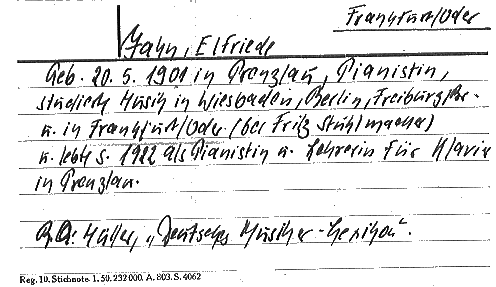 Frankfurt/Oder
Jahn, Elfriede
Geb. 20. 5. 1901 in Prenzlau, Pianistin,
studierte Musik in Wiesbaden, Berlin, Freiburg/Br.
u. in Frankfurt/Oder (bei Fritz Stuhlmacher)
u. lebte s. 1922 als Pianistin u. Lehrerin für Klavier
in Prenzlau.
Müller, „Deutsches Musiker-Lexikon".
Reg. 10. Stichnote. 1. 50. 232 000. A. 803. S. 4062